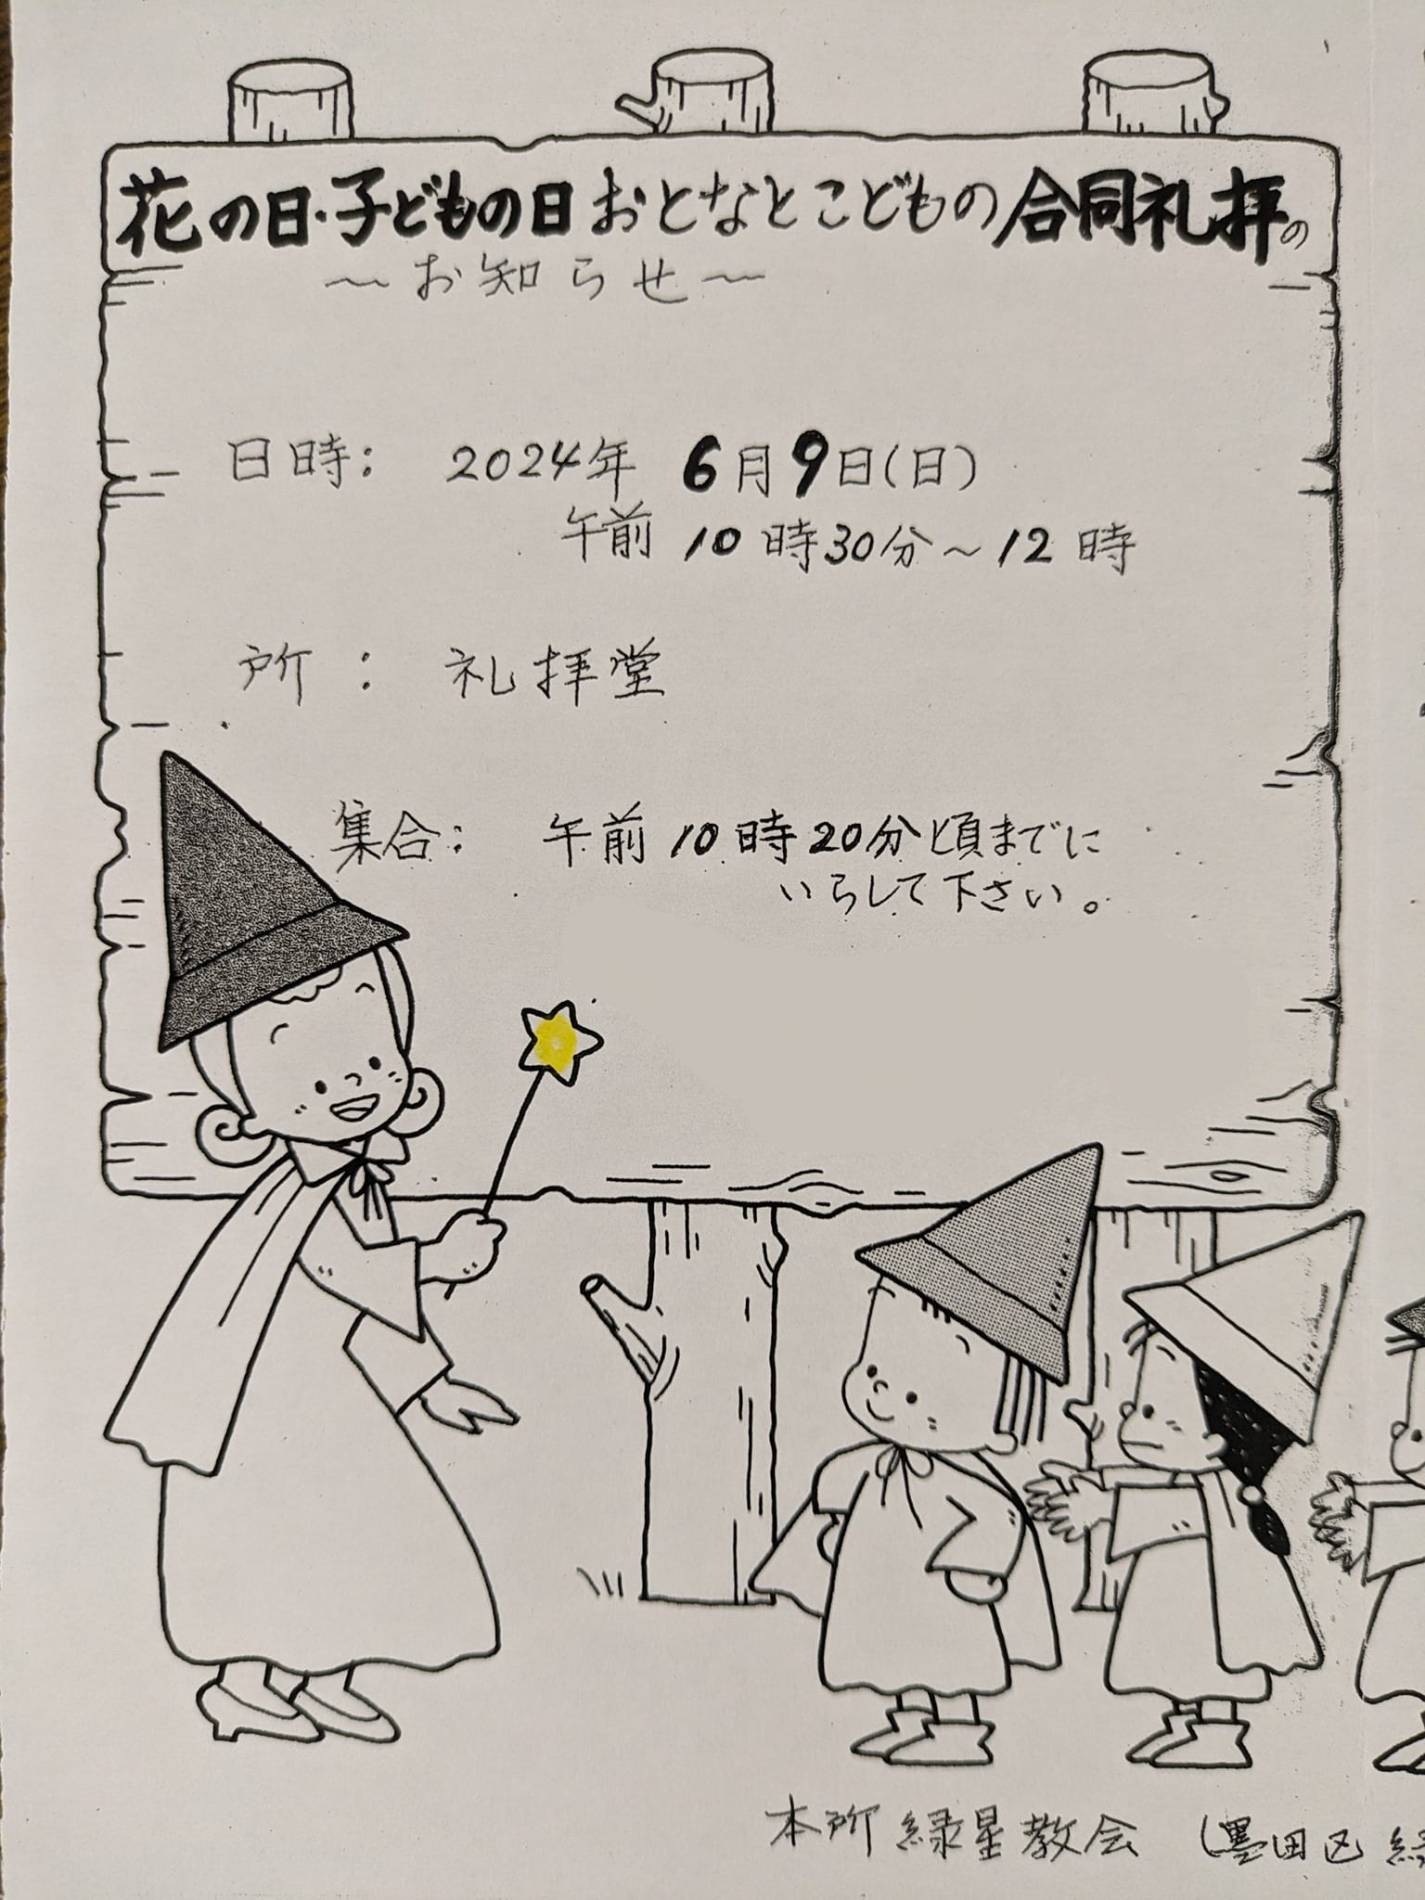 花の日・子どもの日おとなとこどもの合同礼拝の
～お知らせ～
日時： 2024年 6月9日(日)
午前 10時30分～12時
所： 礼拝堂
集合： 午前10時20分頃までに
いらして下さい。
本所緑星教会 (墨田区緑